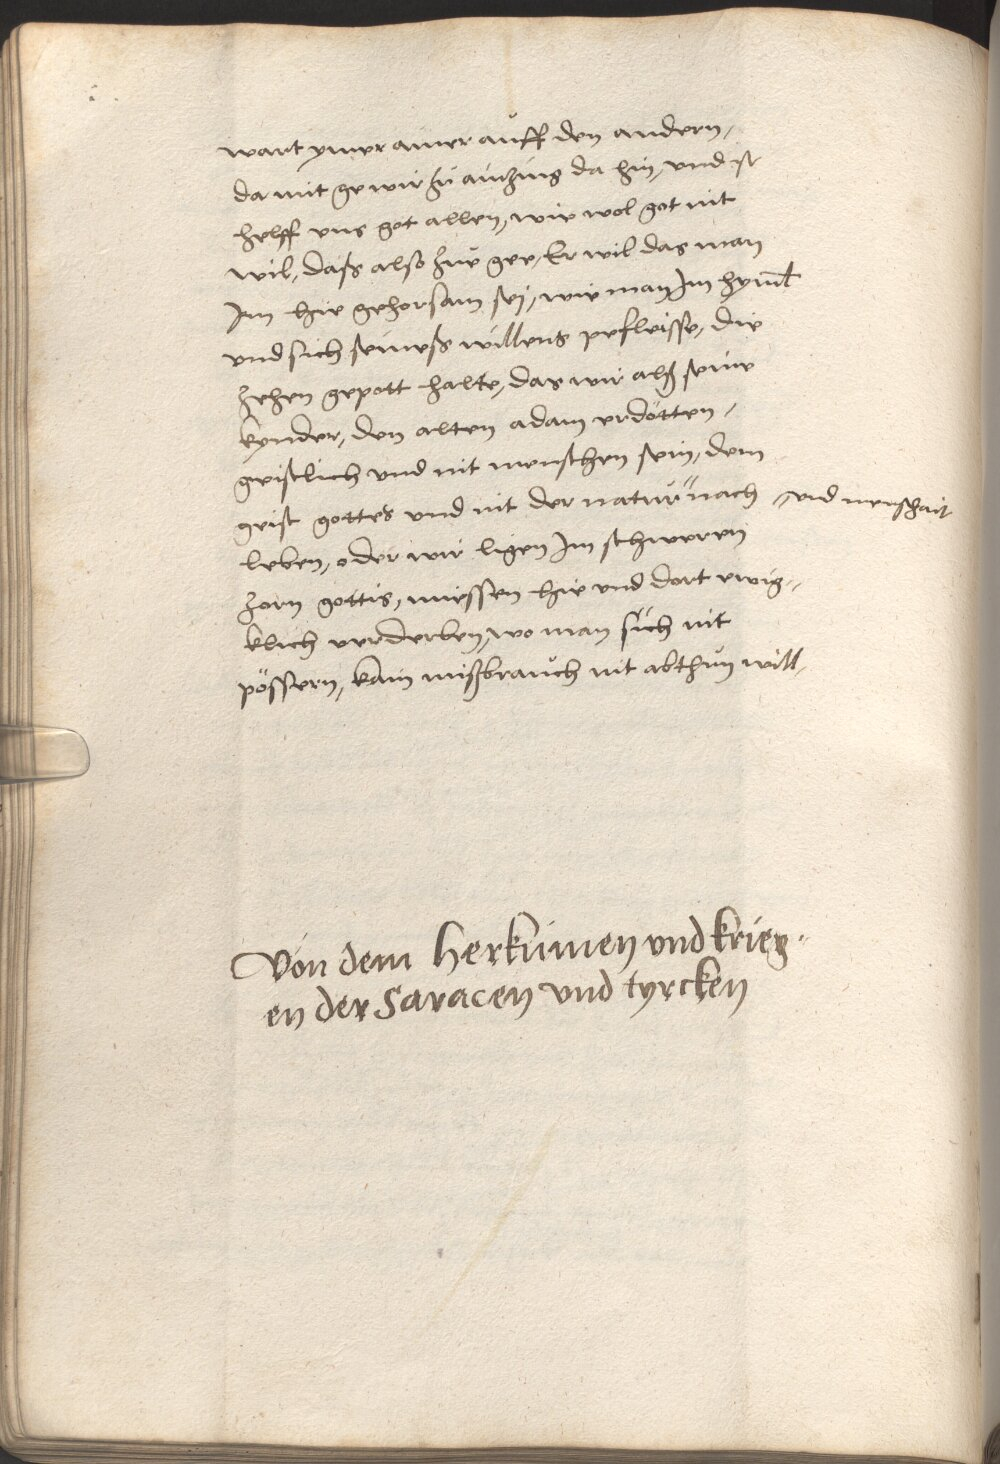 wart ymer ainer auff den andern,
da mit ge wir zü ainzing da hin, und ist
helff uns got allen, wie wol got nit
wil, daß also zue gee, Er wil das man
Im hie gehorsam sej, wie man Im hyml
und sich seineß willens pefleisse, die
zehen gepott halte, das wir alß seine
kynder, den alten adam erdötten,
geistlich und nit menschen sein, dem
geist gottes und nit der natur" nach
und menschait
leben, oder wir ligen Im schweren
zorn gottis, miessen hie und dort ewig„
klich verderben, wo man sich nit
pössern, kain mißbrauch nit abthun will.
Von dem herkumen und krieg„
en der Saracen und tyrcken